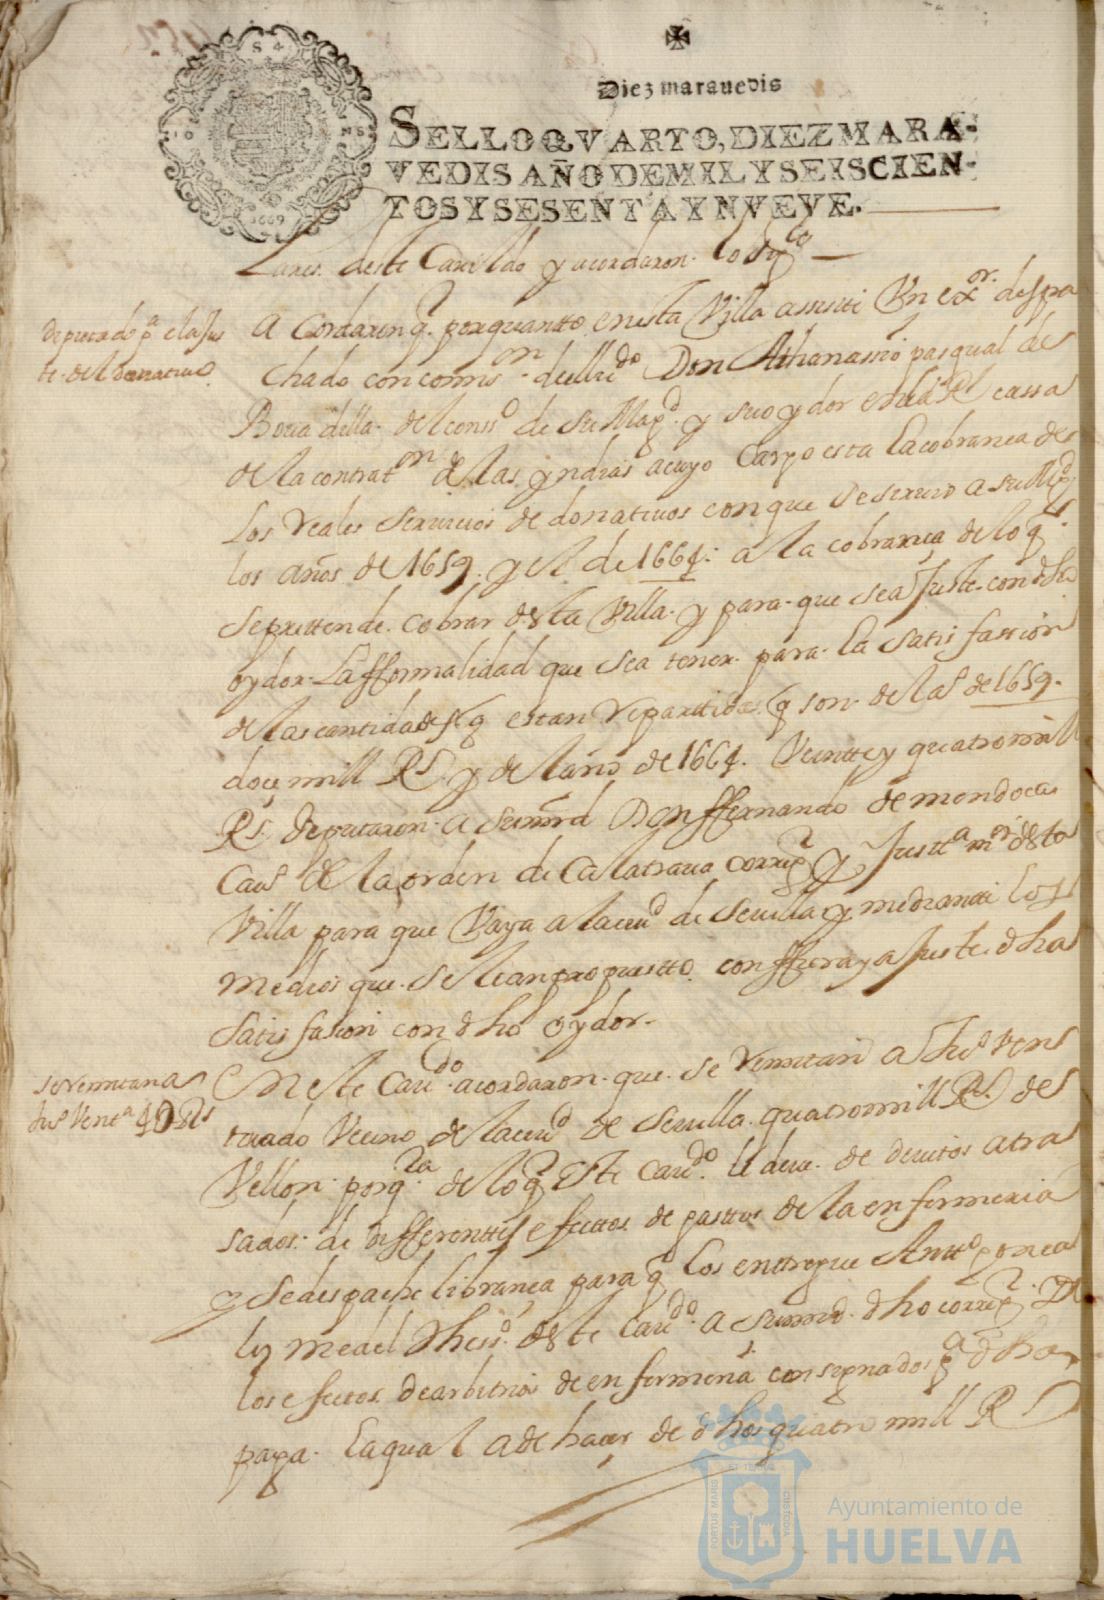 Diez marauedis
SELLO QVARTO, DIEZ MARA-
VEDIS AÑO DE MIL Y SEISCIEN-
TOS Y SESENTA Y NVEVE.
deste Cauildo y acordaron lo sigte
deputado pa el ajus
te del donatiuo
Acordaron q. porquantto enesta Villa assisti Un exor. despa
chado con comison. del licdo Don Athanassio pasqual de
Bouadilla del conso de su Magd. y su oydor enla Rl cassa
de la contraton de las yndias acuyo Cargo esta la cobranca de
los reales seruicios de donatiuos con que se siruio a su Magd
los años de 1659. y el de 1664. a la cobranca de lo q.
se prettende cobrar desta Villa y para que se ajuste con dho
oydor la fformalidad que sea tener para la satisfassion
de las cantidades q estan repartidas q son de las de 1659.
doce mill Rs y del año de 1664. Veintte y quatro mill
Rs. deputaron a su mrd Don ffernando de mendoca
Cauo de la orden de Calatraua corregr y Justta mor desta
Villa para que Vaya a la ciud de Seuilla y mediante los
medios que se le an propuestto conffiera y ajuste dha
satisfasion con dho oydor.
se remitan a
Juo Vente 4D Rs
Eneste Caudo acordaron que se remitan a Juo Ven
turado Vecino de la ciud de Seuilla quatro mill Rs de
Vellon por qta de lo q este Caudo le deue de deuitos atra
sados de differenttes efecttos de pasttos de la enfermeria
y se despache libranca para q los enttregue Antto ponca
ly medel thesso deste Caudo a su mrd dho corregr De
los efectos de arbitrios de enfermeria consignados pa dha
paga la qual a de hacer de dhos quatro mill Rs
PORTUS MARIS
ET TERRAE
CUSTODIA
Ayuntamiento de
HUELVA